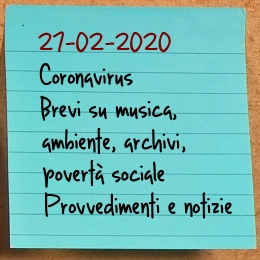 27-02-2020
Coronavirus
Brevi su musica,
ambiente, archivi,
povertà sociale
Provvedimenti e notizie